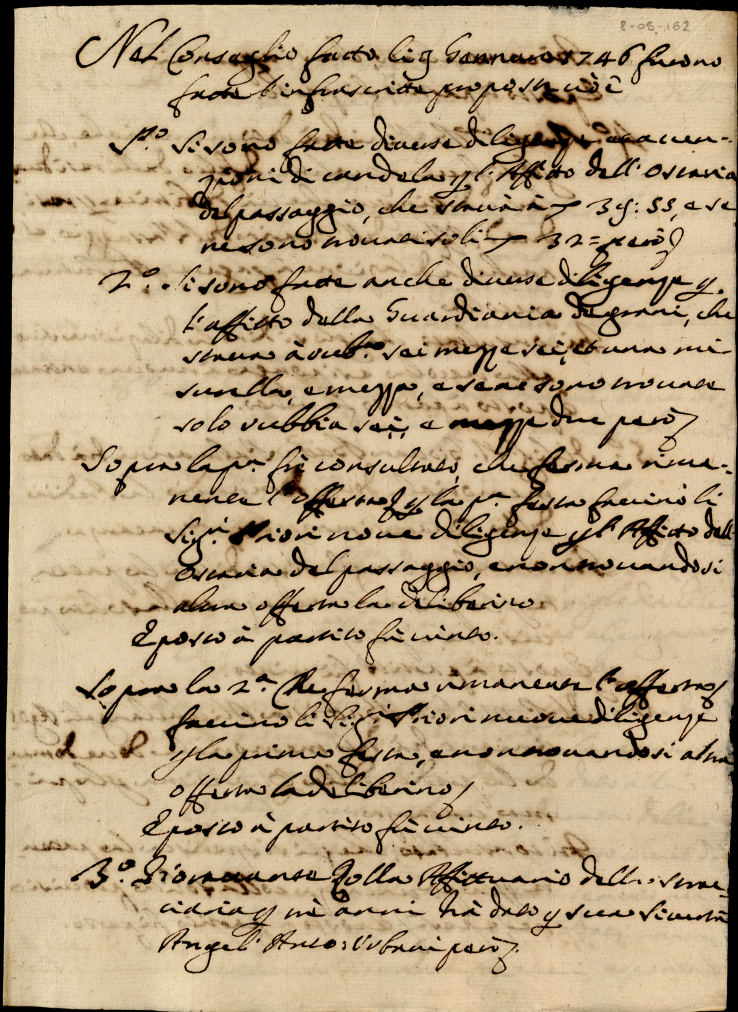 8-05-162
Nel Conseglio fatto li 9 Gennaro 1746 furono
fatte l'infrascritte proposte cioè
P.º Si sono fatte diverse diligenze et accen-
zioni di candela p l'Affitto dell'Ostaria
del passaggio, che stava à 39:55, e se
ne sono trovati soli 32 = però
2.º Si sono fatte anche diverse diligenze p
l'affitto della Guardiania de grani, che
stava à rub. sei mezze sei, et una mi-
surella, e mezza, e se ne sono trovate
solo rubbia sei, e mezze due però
Sopra la p.ª fù consultato, che ferma rima-
nente l'offerta p la p.ª festa faccino li
Sig.ri Priori nove diligenze p l'Affitto dell'
ostaria del passaggio, e non trovandosi
altra offerta la deliberino
E posto à partito fù vinto.
Sopra la 2.ª Che ferma rimanente l'offerta
faccino li Sig.ri Priori nuove diligenze
p la prima festa, e non trovandosi altra
offerta la deliberino
E posto à partito fù vinto.
3.º Zolla Affittuario della strac-
ciaria p trè anni hà dato p sua sicurtà
Angel' Anto: Urbani però